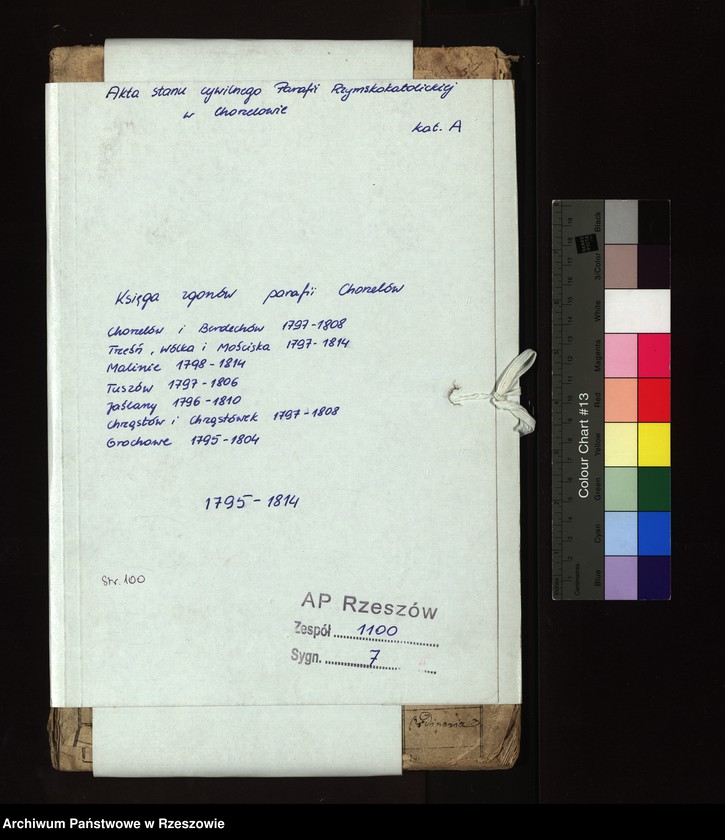 Akta stanu cywilnego Parafii Rzymskokatolickiej
w Chorzelowie
kat. A
Księga zgonów parafii Chorzelów
Chorzelów i Bordechów 1797-1808
Trześń, Wólka i Mościska 1797-1814
Malinie 1798-1814
Tuszów 1797-1806
Jaślany 1796-1810
Chrząstów i Chrząstówek 1797-1808
Grochowe 1795-1804
1795-1814
Str. 100
AP Rzeszów
Zespół 1100
Sygn. 7
Colour Chart #13
Black
3/Color
White
Magenta
Red
Yellow
Green
Cyan
Blue
Centimetres
Archiwum Państwowe w Rzeszowie